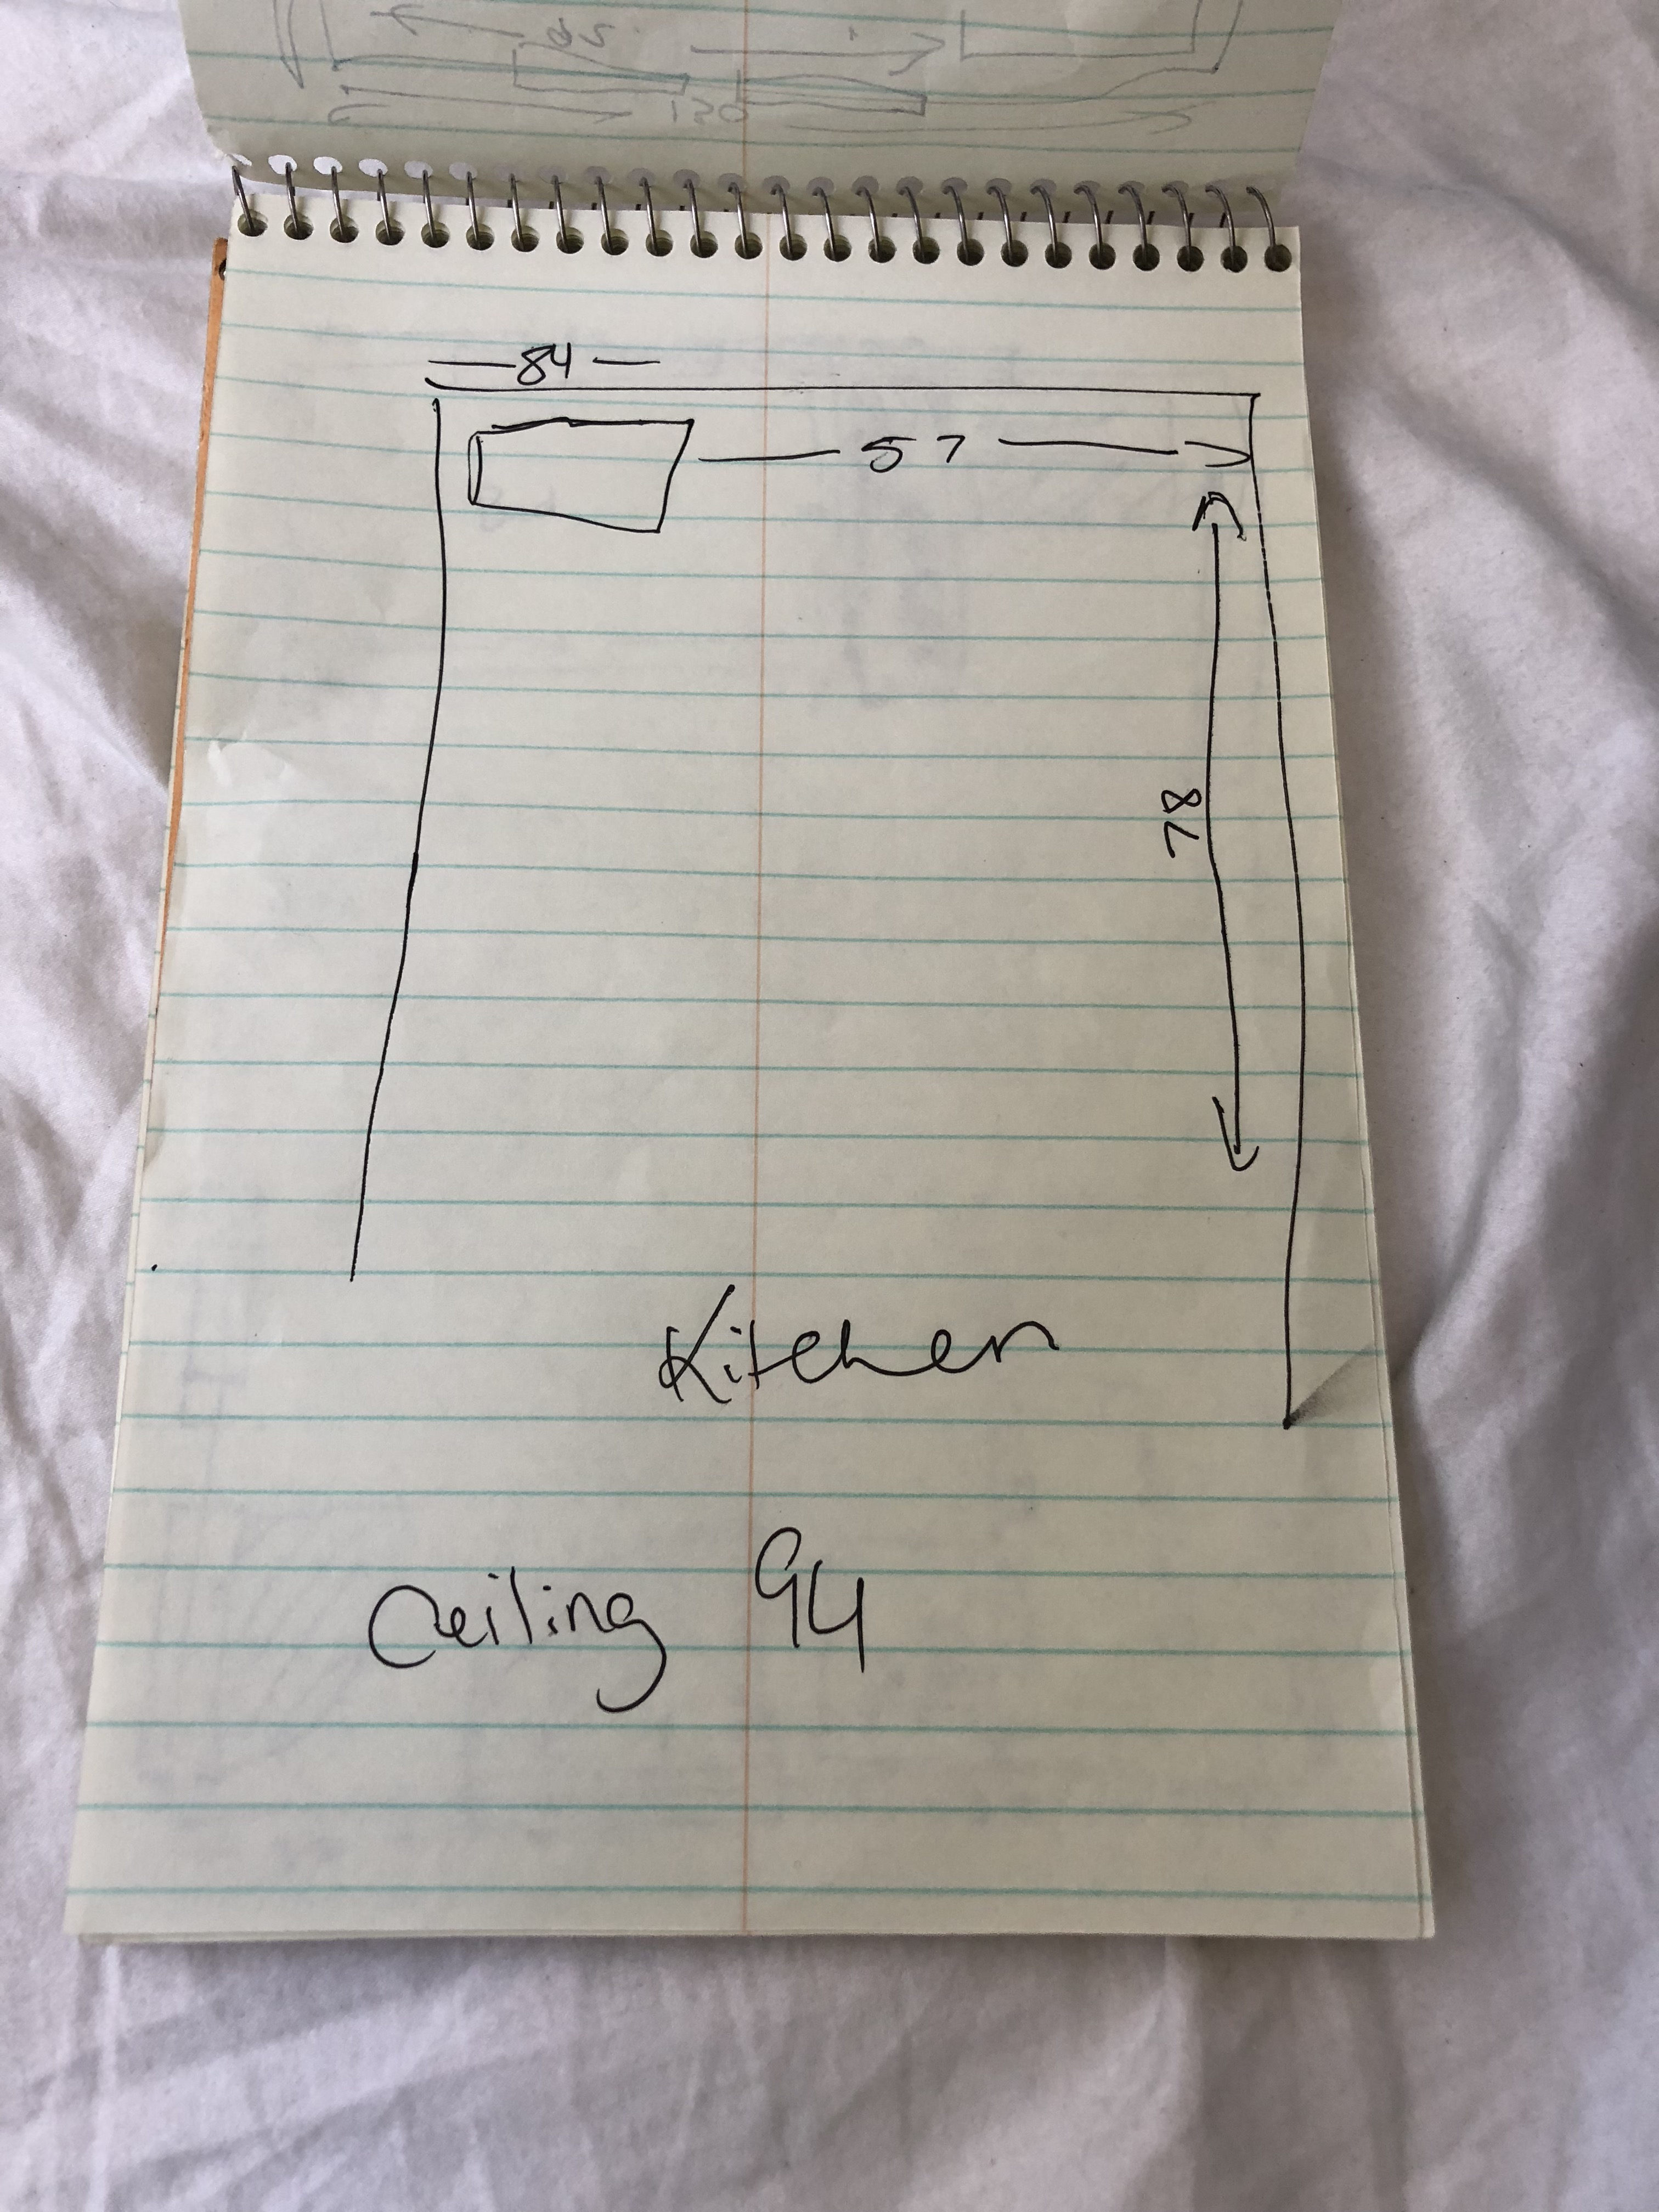 130
84
57
78
Kitchen
Ceiling 94